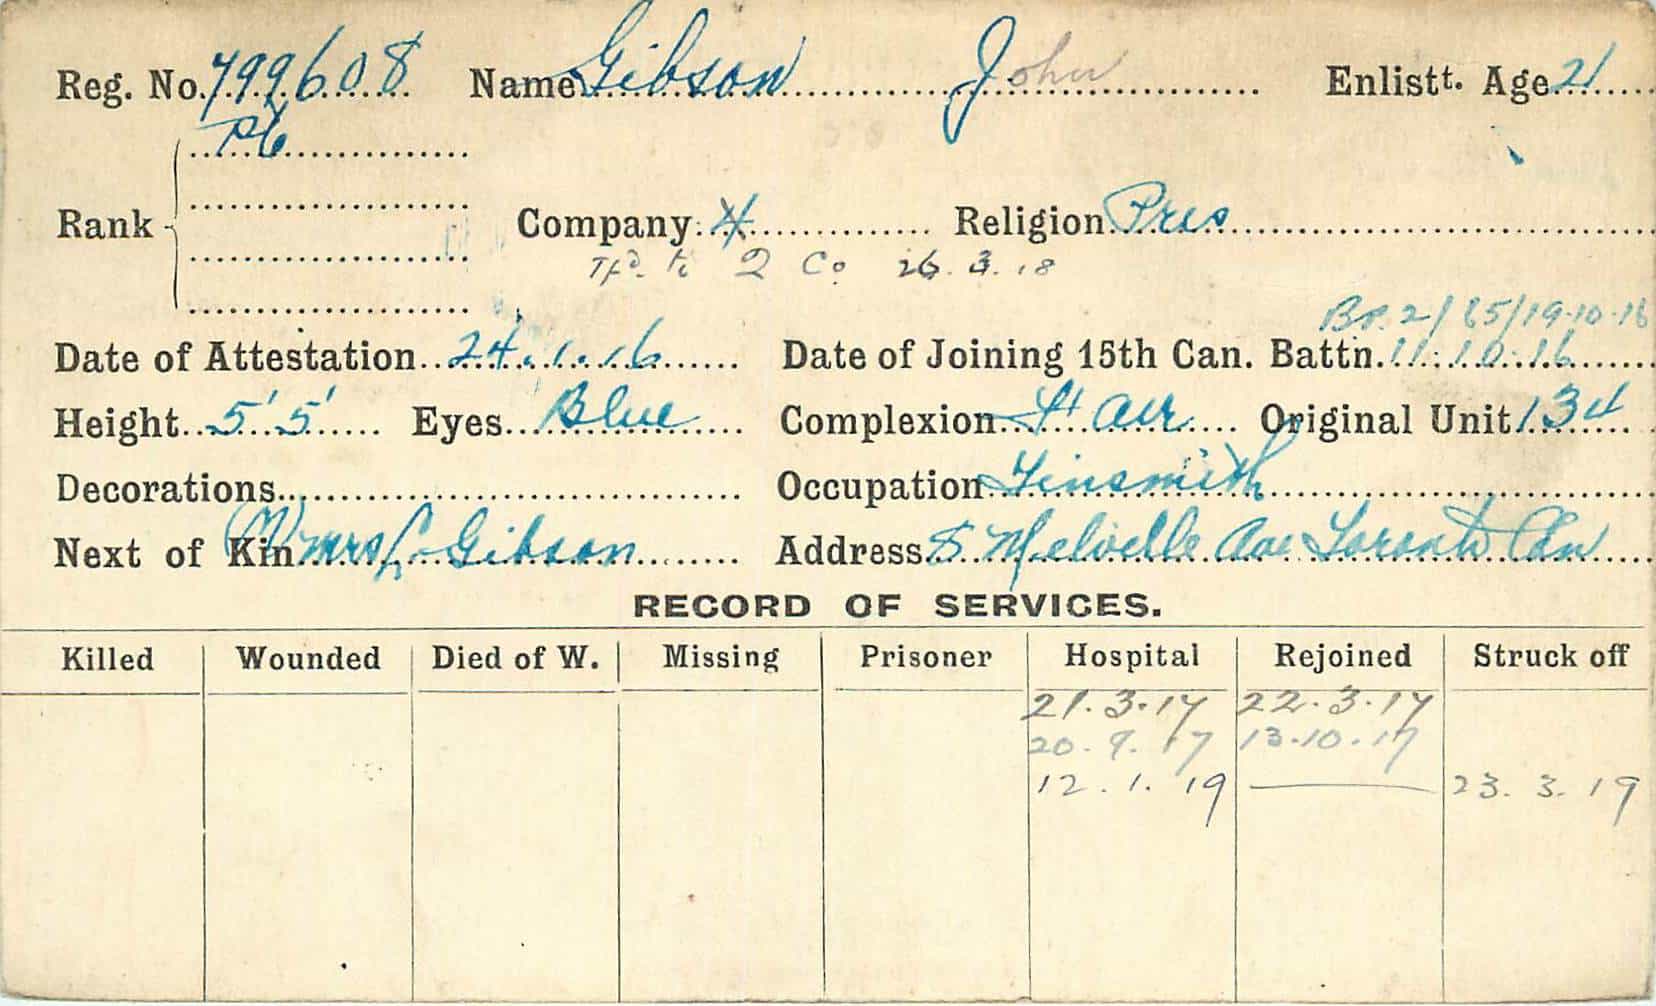 Reg. No. 799608 Name Gibson John Enlistt. Age 21
Pte
Rank Company 4 Religion Pres
Tfd. to 2 Co 26.3.18
Bn. 2/ 85/19-10-16
Date of Attestation 24.1.16 Date of Joining 15th Can. Battn. 11.10.16
Height 5' 5' Eyes Blue Complexion Fair Original Unit 134
Decorations Occupation Tinsmith
Next of Kin (M) mrs L Gibson Address 8 Melville Ave Toronto Can
RECORD OF SERVICES.
Killed Wounded Died of W. Missing Prisoner Hospital Rejoined Struck off
21.3.17 22.3.17
20.9.17 13.10.17
12.1.19 — 23.3.19